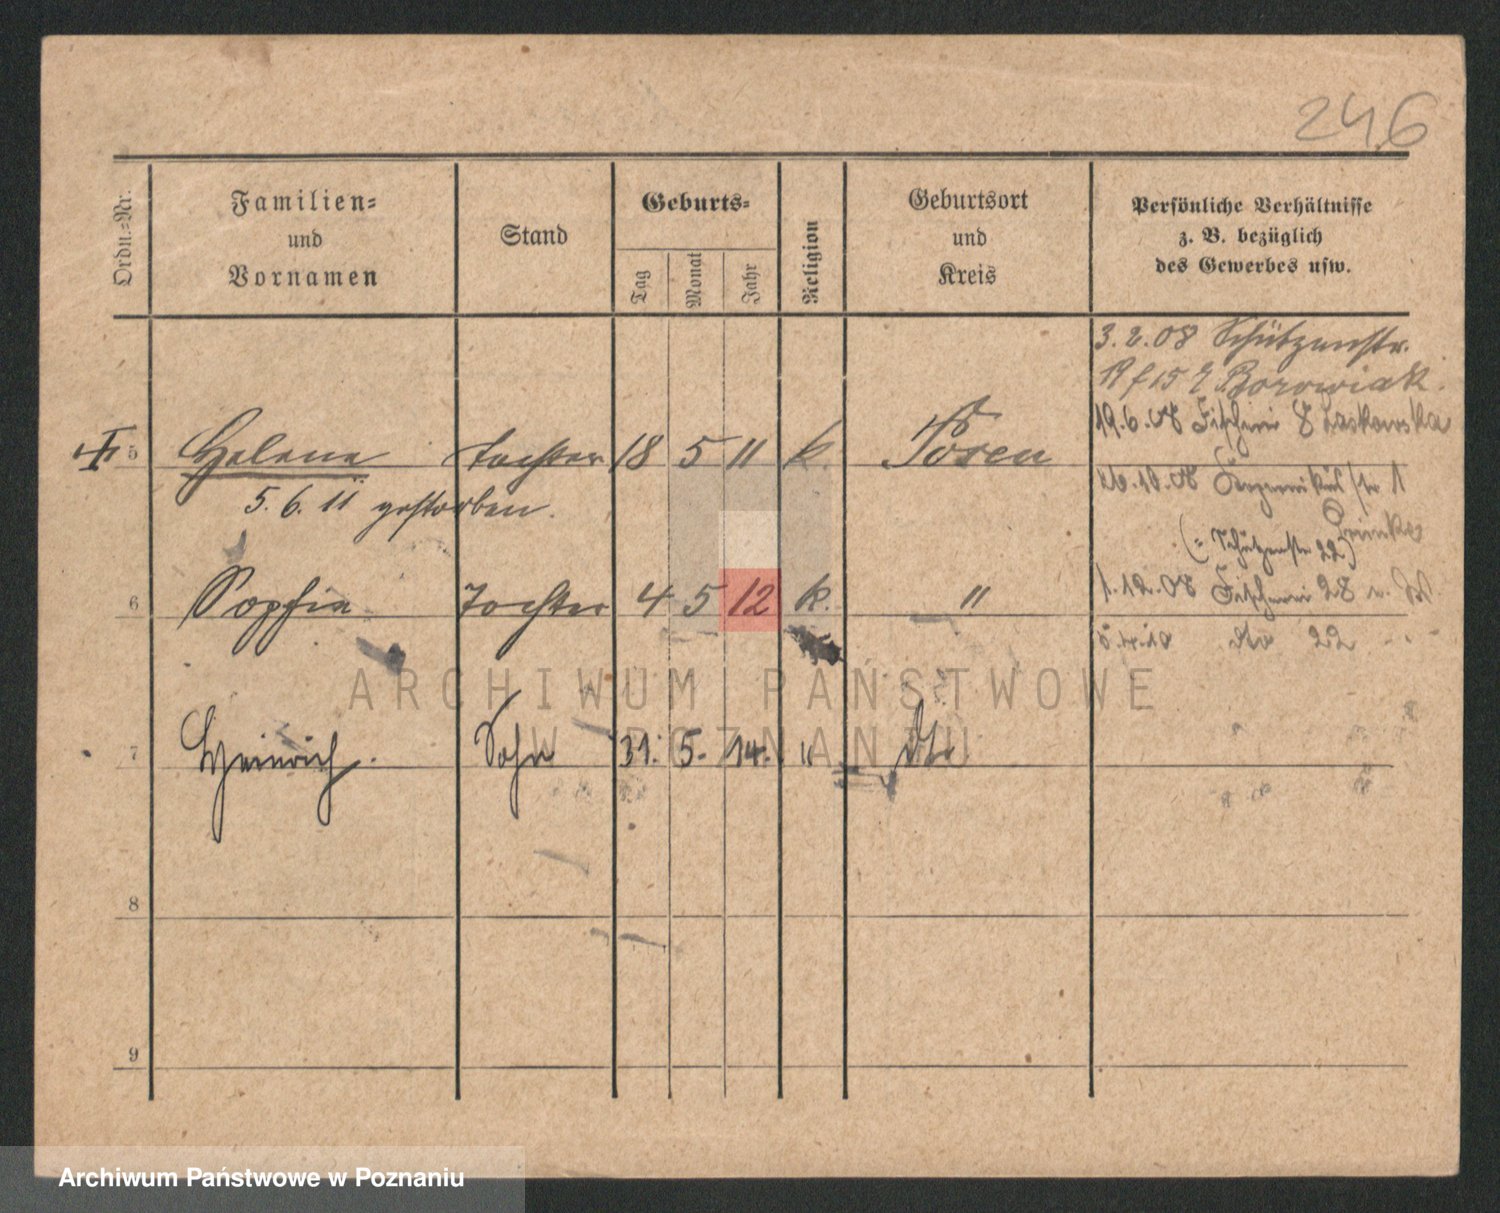 246
Ordn.-Nr.
Familien-
und
Vornamen
Stand
Geburts-
Tag
Monat
Jahr
Religion
Geburtsort
und
Kreis
Persönliche Verhältnisse
z. B. bezüglich
des Gewerbes usw.
3.2.08 Schützenstr.
15 Borowiak.
19.6.08 Fischerei 8 Laskowska
5 Helene Tochter 18 5 11 k. Posen
5. 6. 11 gestorben.
10.08 1
(= Schützenstr 22)
6 Sophie Tochter 4 5 12 k. "
1.12.08 Fischerei 28
dto 22
7 Heinrich. Sohn 31. 5. 14. " dto
8
9
ARCHIWUM PAŃSTWOWE
W POZNANIU
Archiwum Państwowe w Poznaniu